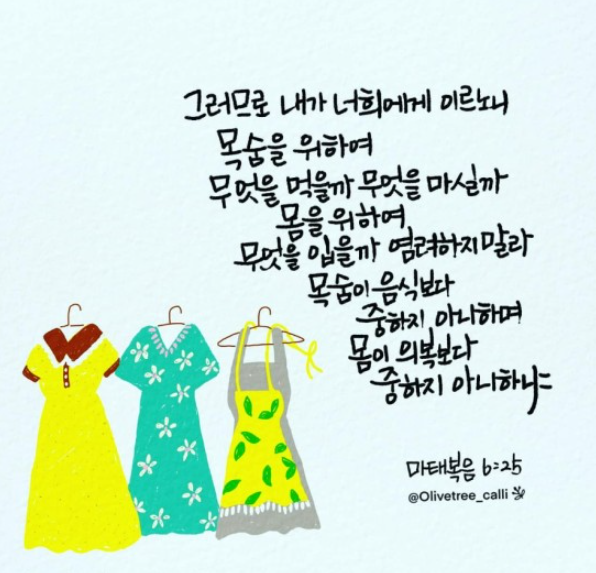 그러므로 내가 너희에게 이르노니
목숨을 위하여
무엇을 먹을까 무엇을 마실까
몸을 위하여
무엇을 입을까 염려하지말라
목숨이 음식보다
중하지 아니하며
몸이 의복보다
중하지 아니하냐
마태복음 6:25
@Olivetree_calli